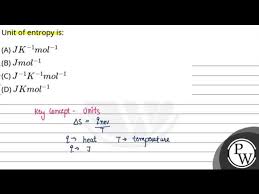 Unit of entropy is:
(A) JK⁻¹mol⁻¹
(B) Jmol⁻¹
(C) J⁻¹K⁻¹mol⁻¹
(D) JKmol⁻¹
Key Concept - Units
ΔS = qrev
T
q → heat T → temperature
q → J
PW